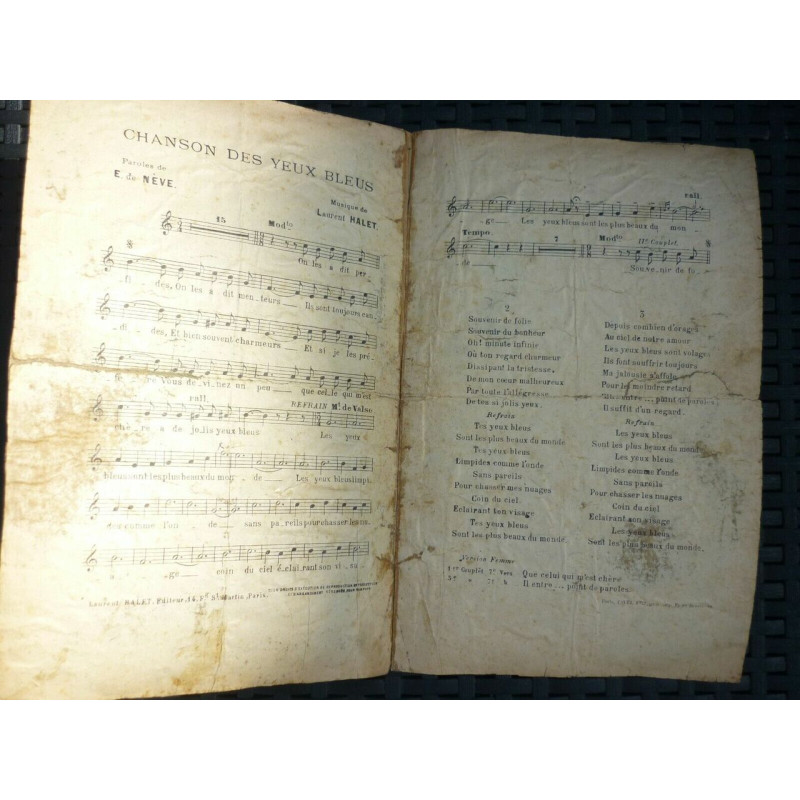 CHANSON DES YEUX BLEUS
Paroles de
E. de NÈVE.
Musique de
Laurent HALET.
15 Mod.to
On les a dit per_
fi_des, On les a dit men_teurs_ Ils sont toujours can_
di_des, Et bien souvent charmeurs_ Et si je les pré_
fè_re Vous de_vi_nez un peu_ que cel_le qui m'est
rall. REFRAIN M.t de Valse
chè_re a de jo_lis yeux bleus Les yeux
bleus sont les plus beaux du mon_de_ Les yeux bleus limpi_
des comme l'on_de_ sans pareils pour chasser les nu_
a_ge_ coin du ciel é_clai_rant son vi_sa_
Laurent HALET, Editeur, 14, F.g S.t Martin, Paris.
rall.
ge_ Les yeux bleus sont les plus beaux du mon_
Tempo 7 Mod.to II.e Couplet.
de_ Souve_nir de fo_
2
Souvenir de folie
Souvenir du bonheur
Oh! minute infinie
Où ton regard charmeur
Dissipant la tristesse.
De mon cœur malheureux
Par toute l'allégresse
De tes si jolis yeux.
Refrain
Tes yeux bleus
Sont les plus beaux du monde
Tes yeux bleus
Limpides comme l'onde
Sans pareils
Pour chasser mes nuages
Coin du ciel
Eclairant ton visage
Tes yeux bleus
Sont les plus beaux du monde.
Version Femme
1er Couplet 7e Vers Que celui qui m'est chère
3e " 7e h Il entre... point de paroles
3
Depuis combien d'orages
Au ciel de notre amour
Les yeux bleus sont volages
Ils font souffrir toujours
Ma jalousie s'affole
Pour le moindre retard
Elle entre... point de paroles
Il suffit d'un regard.
Refrain
Les yeux bleus
Sont les plus beaux du monde
Les yeux bleus
Limpides comme l'onde
Sans pareils
Pour chasser les nuages
Coin du ciel
Eclairant son visage
Les yeux bleus
Sont les plus beaux du monde.